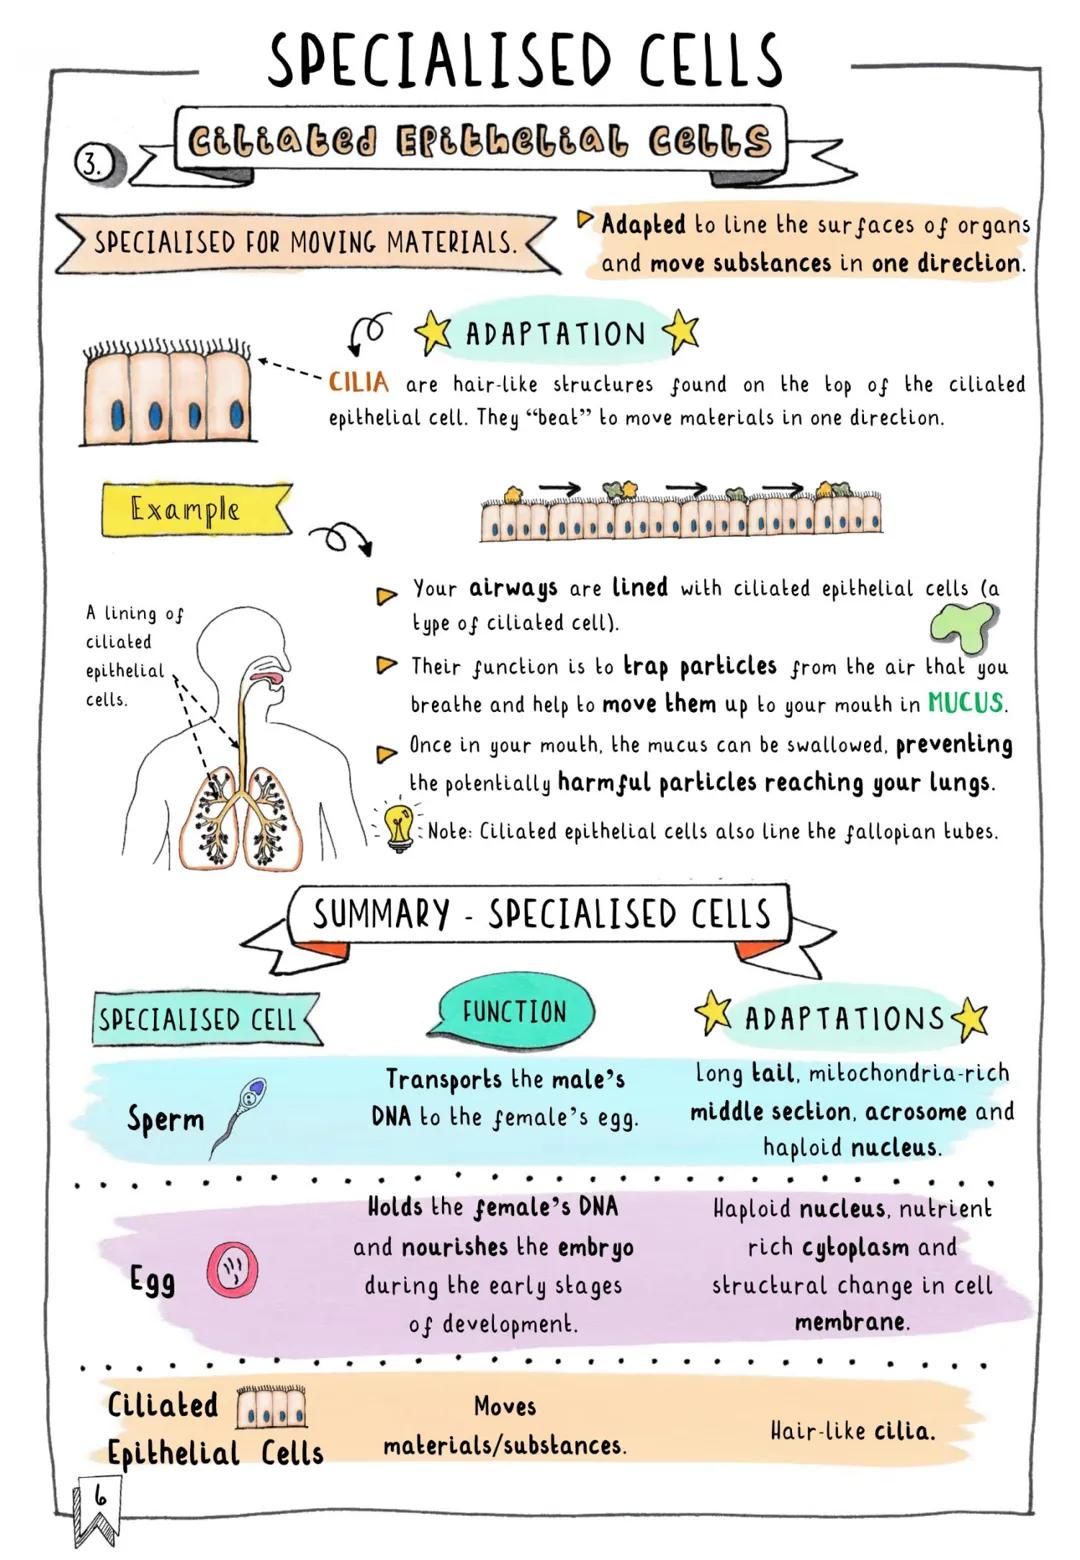 SPECIALISED CELLS
3.
Ciliated Epithelial Cells
SPECIALISED FOR MOVING MATERIALS.
Adapted to line the surfaces of organs
and move substances in one direction.
ADAPTATION
CILIA are hair-like structures found on the top of the ciliated
epithelial cell. They “beat” to move materials in one direction.
Example
A lining of
ciliated
epithelial
cells.
Your airways are lined with ciliated epithelial cells (a
type of ciliated cell).
Their function is to trap particles from the air that you
breathe and help to move them up to your mouth in MUCUS.
Once in your mouth, the mucus can be swallowed, preventing
the potentially harmful particles reaching your lungs.
Note: Ciliated epithelial cells also line the fallopian tubes.
SUMMARY - SPECIALISED CELLS
SPECIALISED CELL
FUNCTION
ADAPTATIONS
Sperm
Transports the male’s
DNA to the female’s egg.
Long tail, mitochondria-rich
middle section, acrosome and
haploid nucleus.
Egg
Holds the female’s DNA
and nourishes the embryo
during the early stages
of development.
Haploid nucleus, nutrient
rich cytoplasm and
structural change in cell
membrane.
Ciliated
Epithelial Cells
Moves
materials/substances.
Hair-like cilia.
6